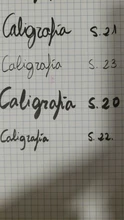 Caligrafia S. 21
Caligrafia S. 23
Caligrafia S. 20
Caligrafia S. 22.